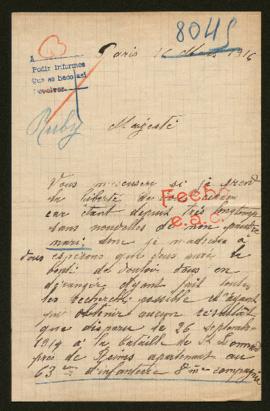 8045
Paris 16 Mars 1916
A
Pedir informes
Que se haco así
Ruby
Majesté
Vous m'excuser si je prend
la liberté de
car étant depuis très longtemps
sans nouvelles de mon pauvre
mari; donc je m'adresse à
Vous esperant que vous aurez la
bonté de vouloir vous en
déranger ayant fait toutes
les recherches possible et ayant
pu obtenir aucun résultat,
que disparu de 26 septembre
1914 à la bataille de St Léonard
près de Reims apartenant au
63 eme d'infanterie 8me compagnie
Fecho
e.a.c.